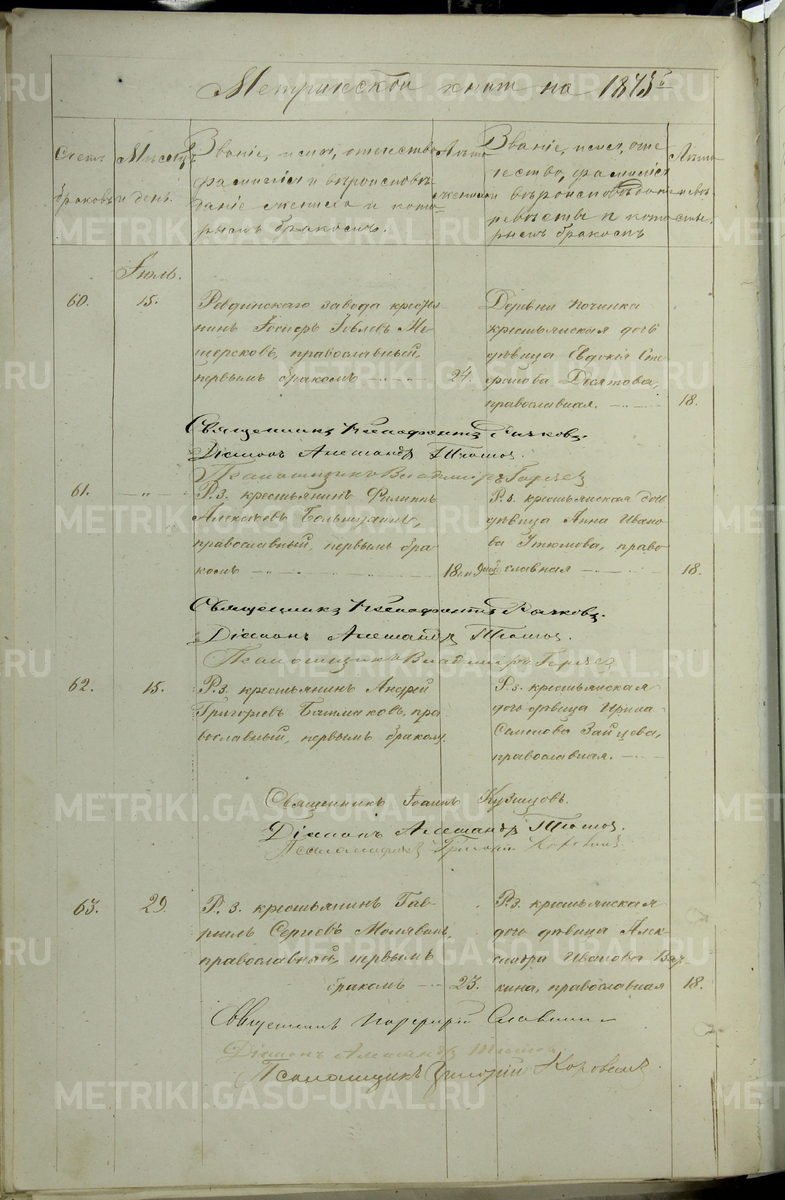 Метрической книги на 1875 г.
Счетъ браковъ
Мѣсяцъ и день.
Званіе, имя, отчество
фамилія и вѣроисповѣ-
даніе жениха и кото-
рымъ бракомъ.
Лѣта
жениха
Званіе, имя, отче
ство, фамилія
и вѣроисповѣданіе
невѣсты и кото
рымъ бракомъ
Лѣта
невѣ-
сты.
Іюль.
60. 15.
Ревдинскаго завода кресть
нинъ Іосифъ
православный,
первымъ бракомъ 24.
Деревни Починка
крестьянская дочь
дѣвица Евдокія Сте
фанова
православная. 18.
Священникъ
Діаконъ Александръ
Псаломщикъ Владиміръ
61. "
Р. з. крестьянинъ Филиппъ
Алексѣевъ
православный, первымъ бра-
комъ 18
Р. з. крестьянская дочь
дѣвица Анна Ивано
ва право
славная 18.
Священникъ
Діаконъ Александръ
Псаломщикъ Владиміръ
62. 15.
Р. з. крестьянинъ Андрей
Григорьевъ Батмаковъ, пра
вославный, первымъ бракомъ
Р. з. крестьянская
дочь дѣвица Ирина
Семенова Зайцева,
православная.
Священникъ Іоаннъ Кузнецовъ.
Діаконъ Александръ
Псаломщикъ Григорій Коровинъ
63. 29.
Р. з. крестьянинъ Гав-
риилъ Сергѣевъ
православный, первымъ
бракомъ 23.
Р. з. крестьянская
дочь дѣвица Алек-
сандра Иванова
кина, православная 18.
Священникъ Порфирій Славнинъ
Діаконъ Александръ
Псаломщикъ Григорій Коровинъ
METRIKI.GASO-URAL.RU